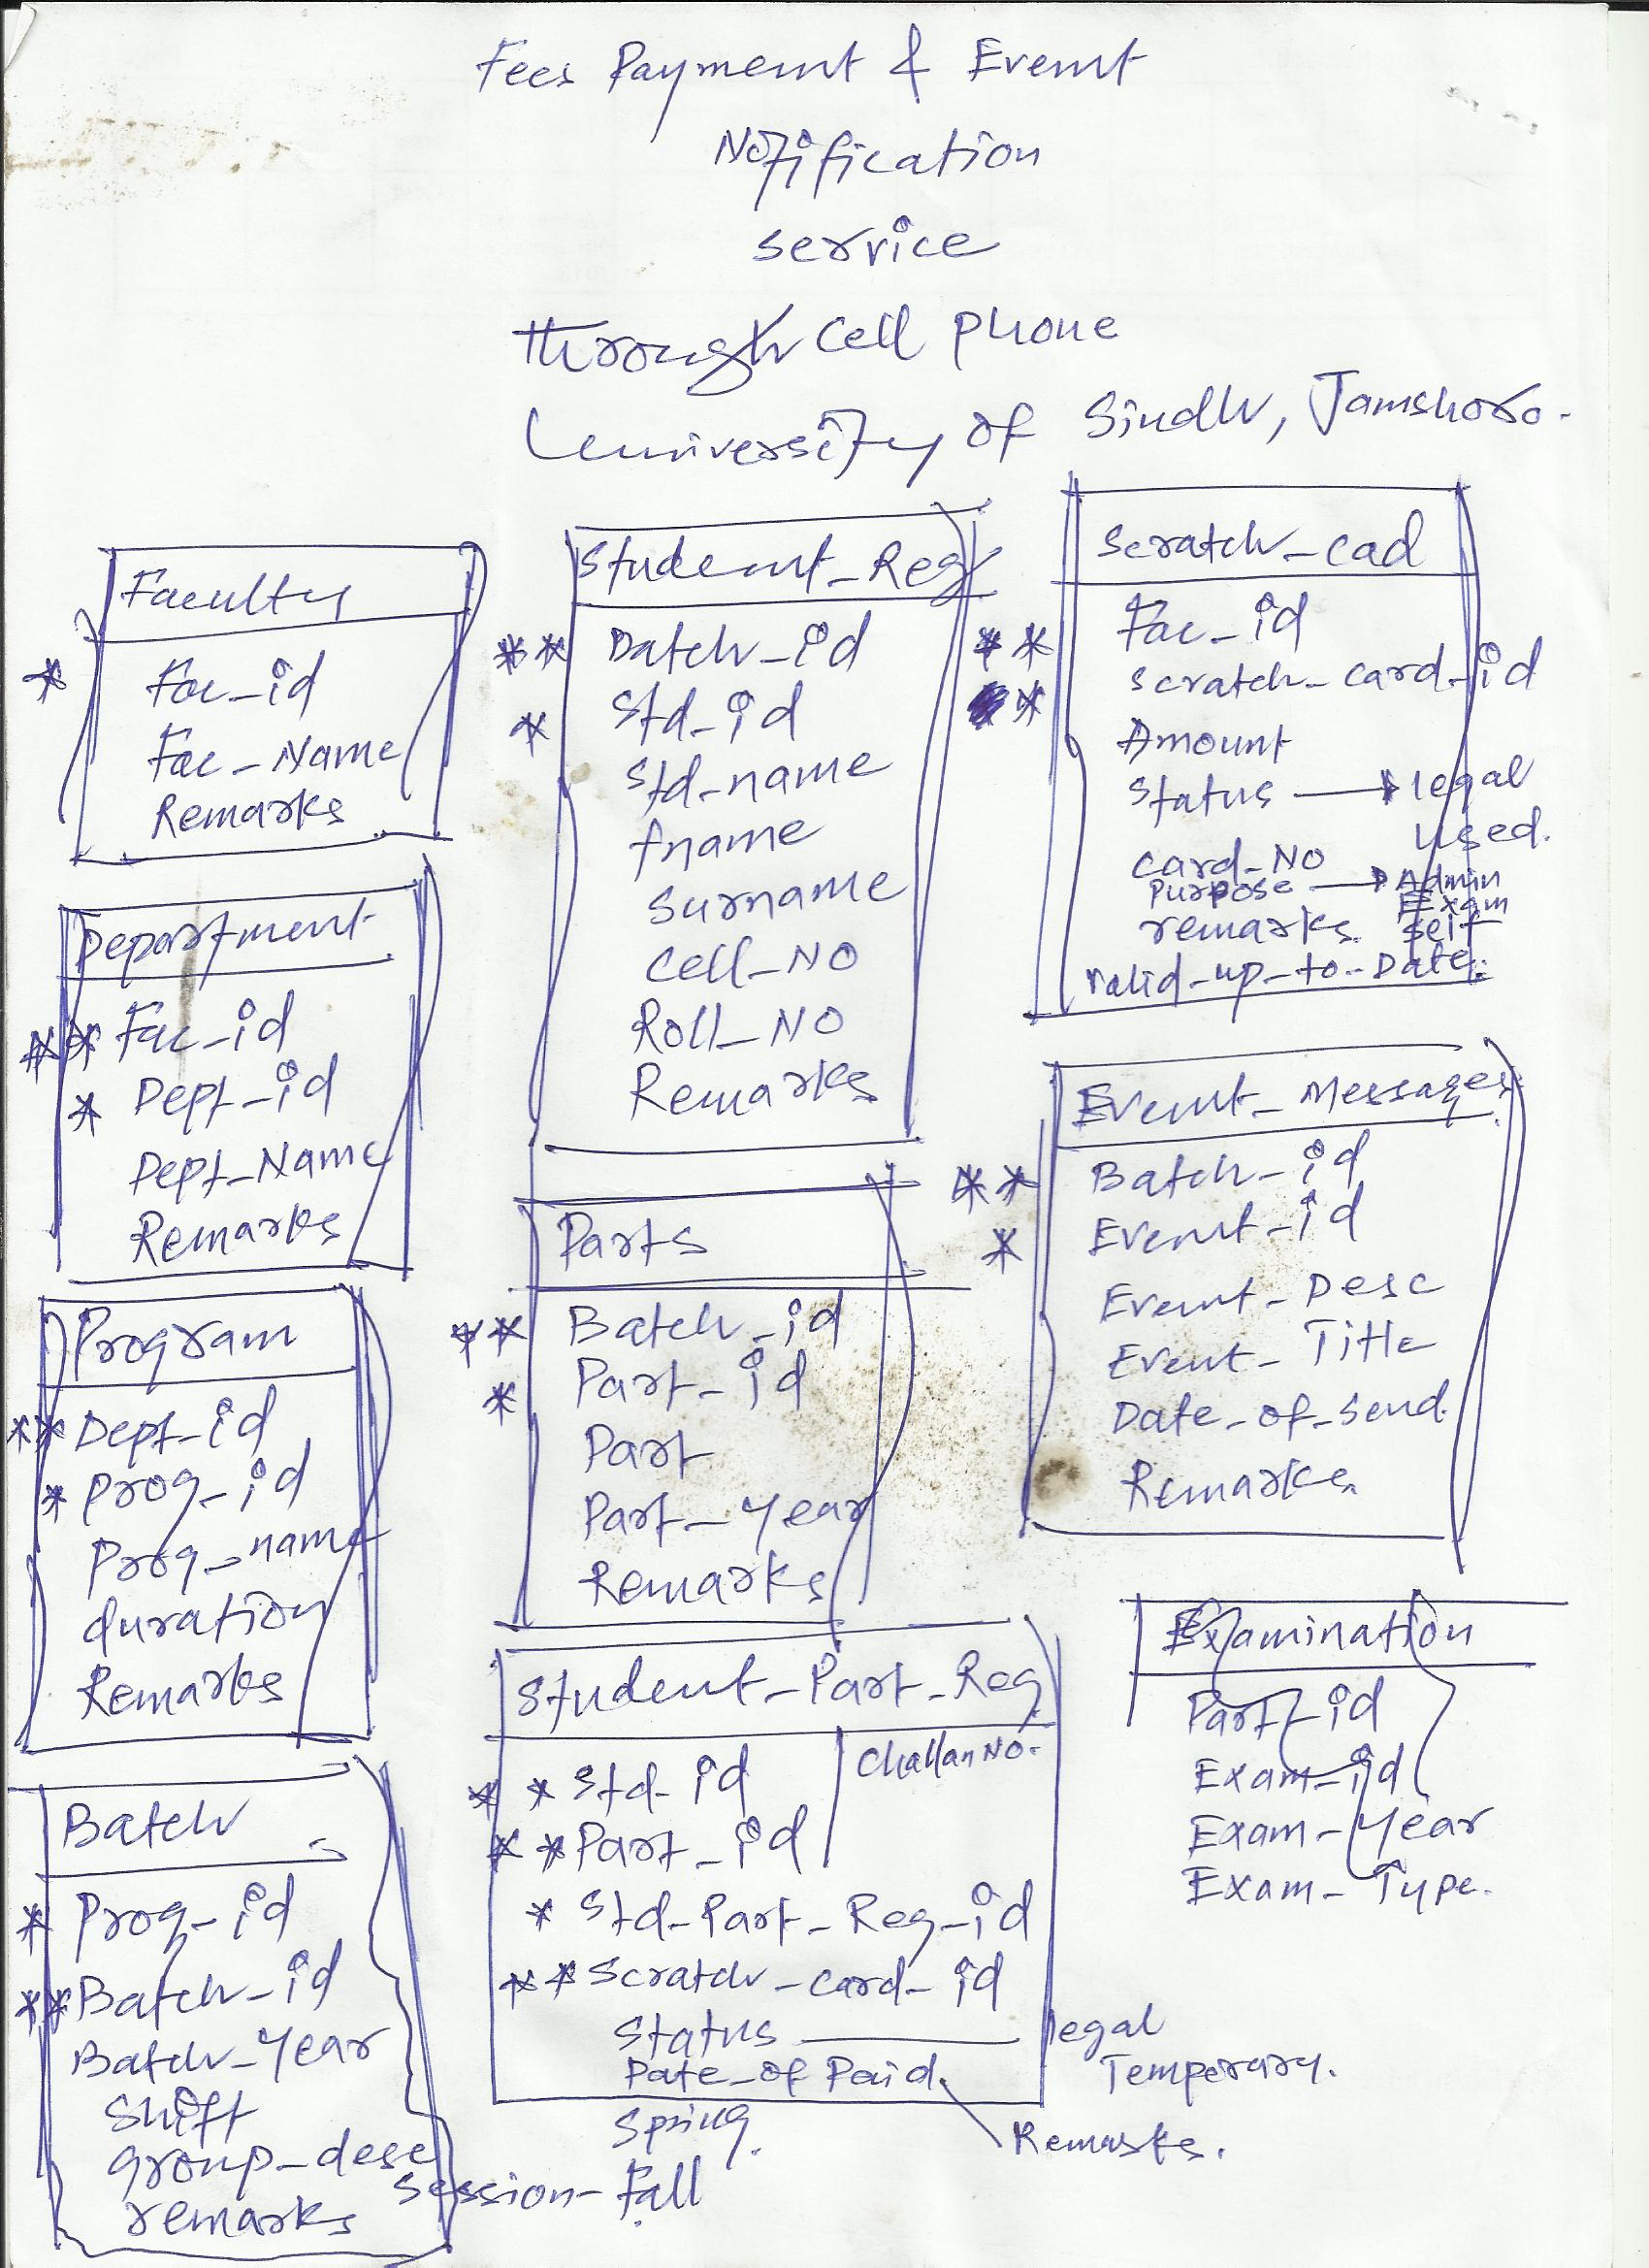 Fees Payment & Event
Notification
service
through cell phone
University of Sindh, Jamshoro.
Faculty
* Fac_id
Fac_Name
Remarks
Department
** Fac_id
* Dept_id
Dept_Name
Remarks
Program
** Dept_id
* prog_id
Prog_name
duration
Remarks
Batch
* Prog_id
** Batch_id
Batch_Year
Shift
group_desc
remarks
Student_Reg
** Batch_id
* Std_id
Std_name
fname
Surname
Cell_NO
Roll_NO
Remarks
Parts
** Batch_id
* Part_id
Part
Part_Year
Remarks
Student_Part_Reg
Challan NO.
** Std_id
** Part_id
* Std_Part_Reg_id
** Scratch_card_id
Status legal
Temperary.
Date_of Paid.
Remarks.
Spring.
Session- Fall
Scratch_cad
** Fac_id
* scratch_card_id
Amount
Status → legal
used.
card_NO
Purpose → Admin
Exam
remarks. self
valid_up_to_Date.
Event_Messages
** Batch_id
* Event_id
Event_Desc
Event_Title
Date_of_send.
Remarks.
Examination
Part_id
Exam_id
Exam_Year
Exam_Type.